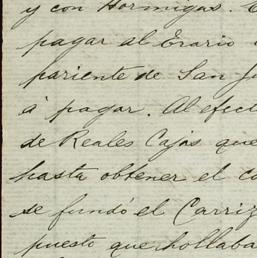 y con Hormigas.
pagar al Erario
pariente de San Ju
á pagar. Al efect
de Reales Cajas que
hasta obtener el ca
se fundó el Carriz
puesto que hollaba